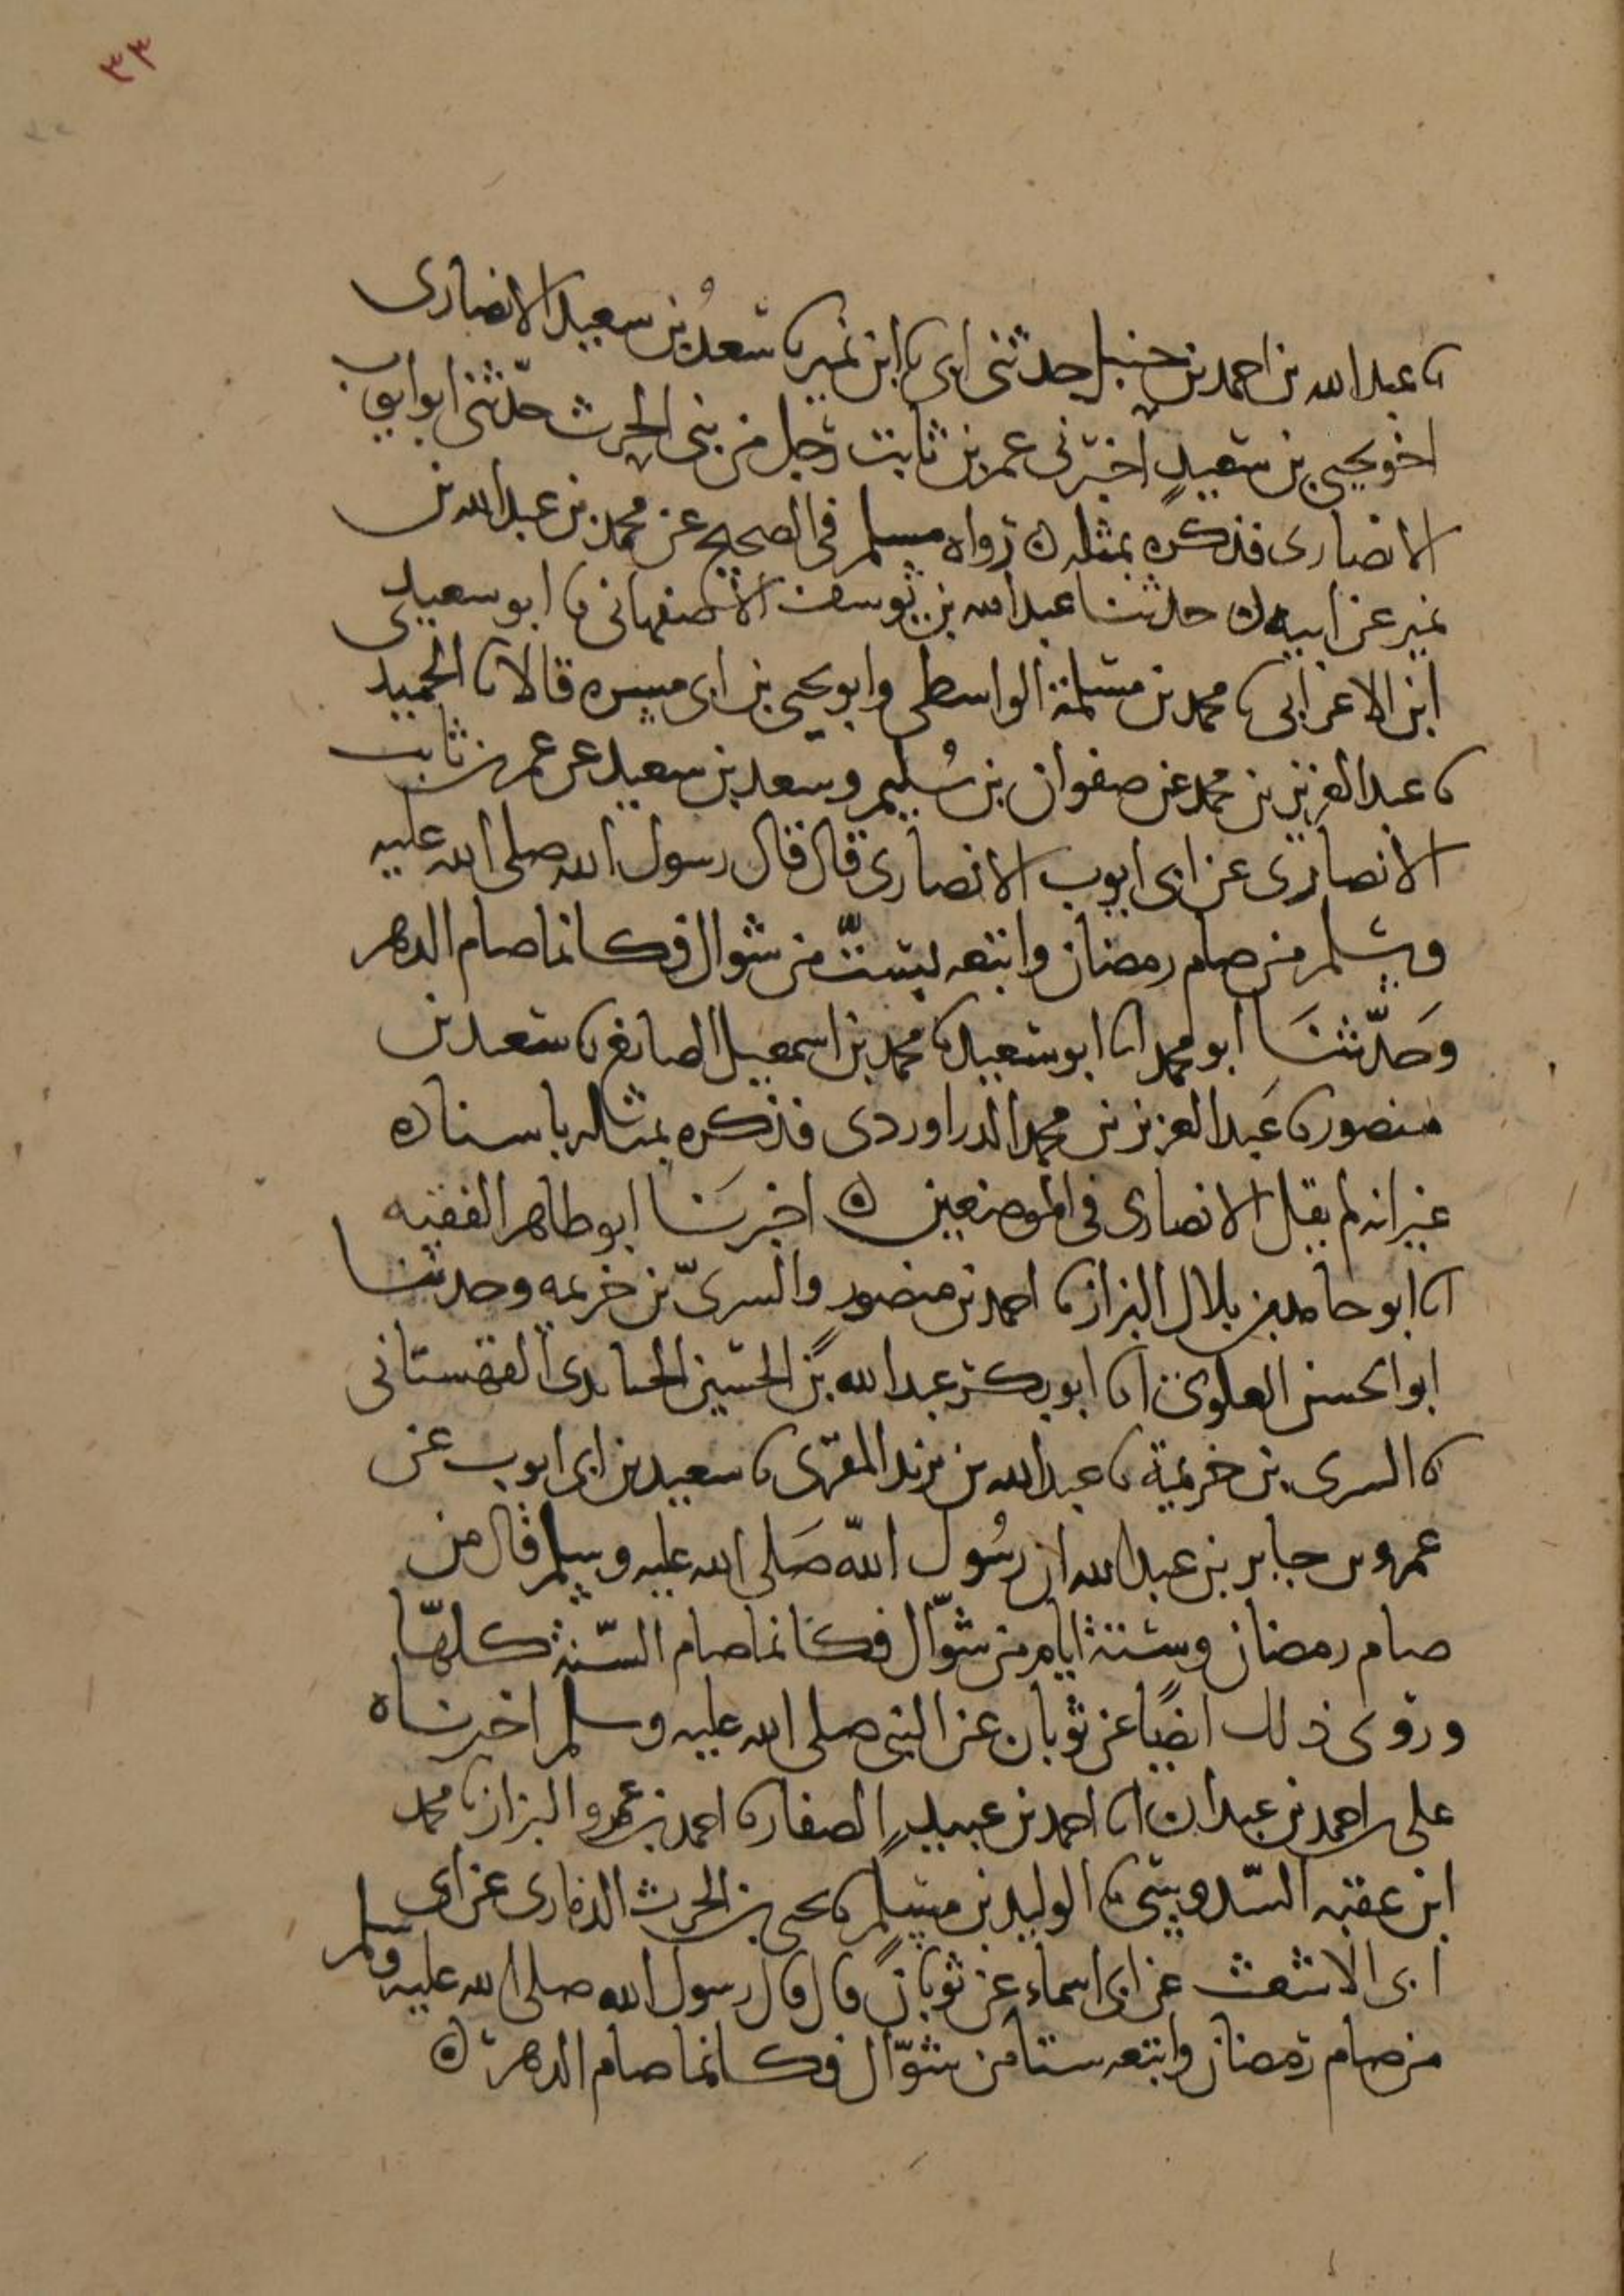 ٣٣
نا عبد الله بن احمد بن حنبل حدثنى ابى نا ابن نمير نا سعد بن سعيد الانصارى
اخو يحيى بن سعيد اخبرنى عمر بن ثابت رجل من بنى الحرث حدّثنى ابو ايوب
الانصارى فذكره بمثله ه رواه مسلم فى الصحيح عن محمد بن عبد الله بن
نمير عن ابيه ه حدثنا عبد الله بن يوسف الاصفهانى نا ابو سعيد
ابن الاعرابى نا محمد بن مسلمة الواسطى وابو يحيى بن ابى مسره قالا نا الحميد
نا عبد العزيز بن محمد عن صفوان بن سُليم وسعد بن سعيد عن عمر بن ثابت
الانصارى عن ابى ايوب الانصارى قال قال رسول الله صلى الله عليه
وسلم من صام رمضان واتبعه بستّ من شوال فكانما صام الدهر
وَحدّثنَا ابو محمد انا ابو سعيد نا محمد بن اسمعيل الصايغ نا سعيد بن
منصور نا عبد العزيز بن محمد الدراوردى فذكره بمثله باسناده
غير انه لم يقل الانصارى فى الموضعين ه اخبرَنا ابو طاهر الفقيه
انا ابو حامد بن بلال البزاز نا احمد بن منصور والسرىّ بن خزيمه وحدثنا
ابو الحسن العلوى انا ابو بكر عبد الله بن الحسين القهستانى
نا السرى بن خزيمة نا عبد الله بن يزيد المقرى نا سعيد بن ابى ايوب عن
عمرو بن جابر بن عبد الله ان رسُول اللّه صَلى الله عليه وسلم قال من
صام رمضان وستة ايام من شوّال فكانما صام السّنة كلهّا
وروى ذلك ايضًا عن ثوبان عن النبى صلى الله عليه وسلم اخبرناه
على بن احمد بن عبدان انا احمد بن عبيد الصفار نا احمد بن عمرو البزاز نا محمد
ابن عقبه السّدوسى نا الوليد بن مسلم نا يحيى بن الحرث الذمارى عن ابى
ابى الاشعث عن ابى اسماء عن ثوبان قال قال رسول الله صلى الله عليه وسلم
من صام رمضان واتبعه ستا من شوّال فكانما صام الدهر ه